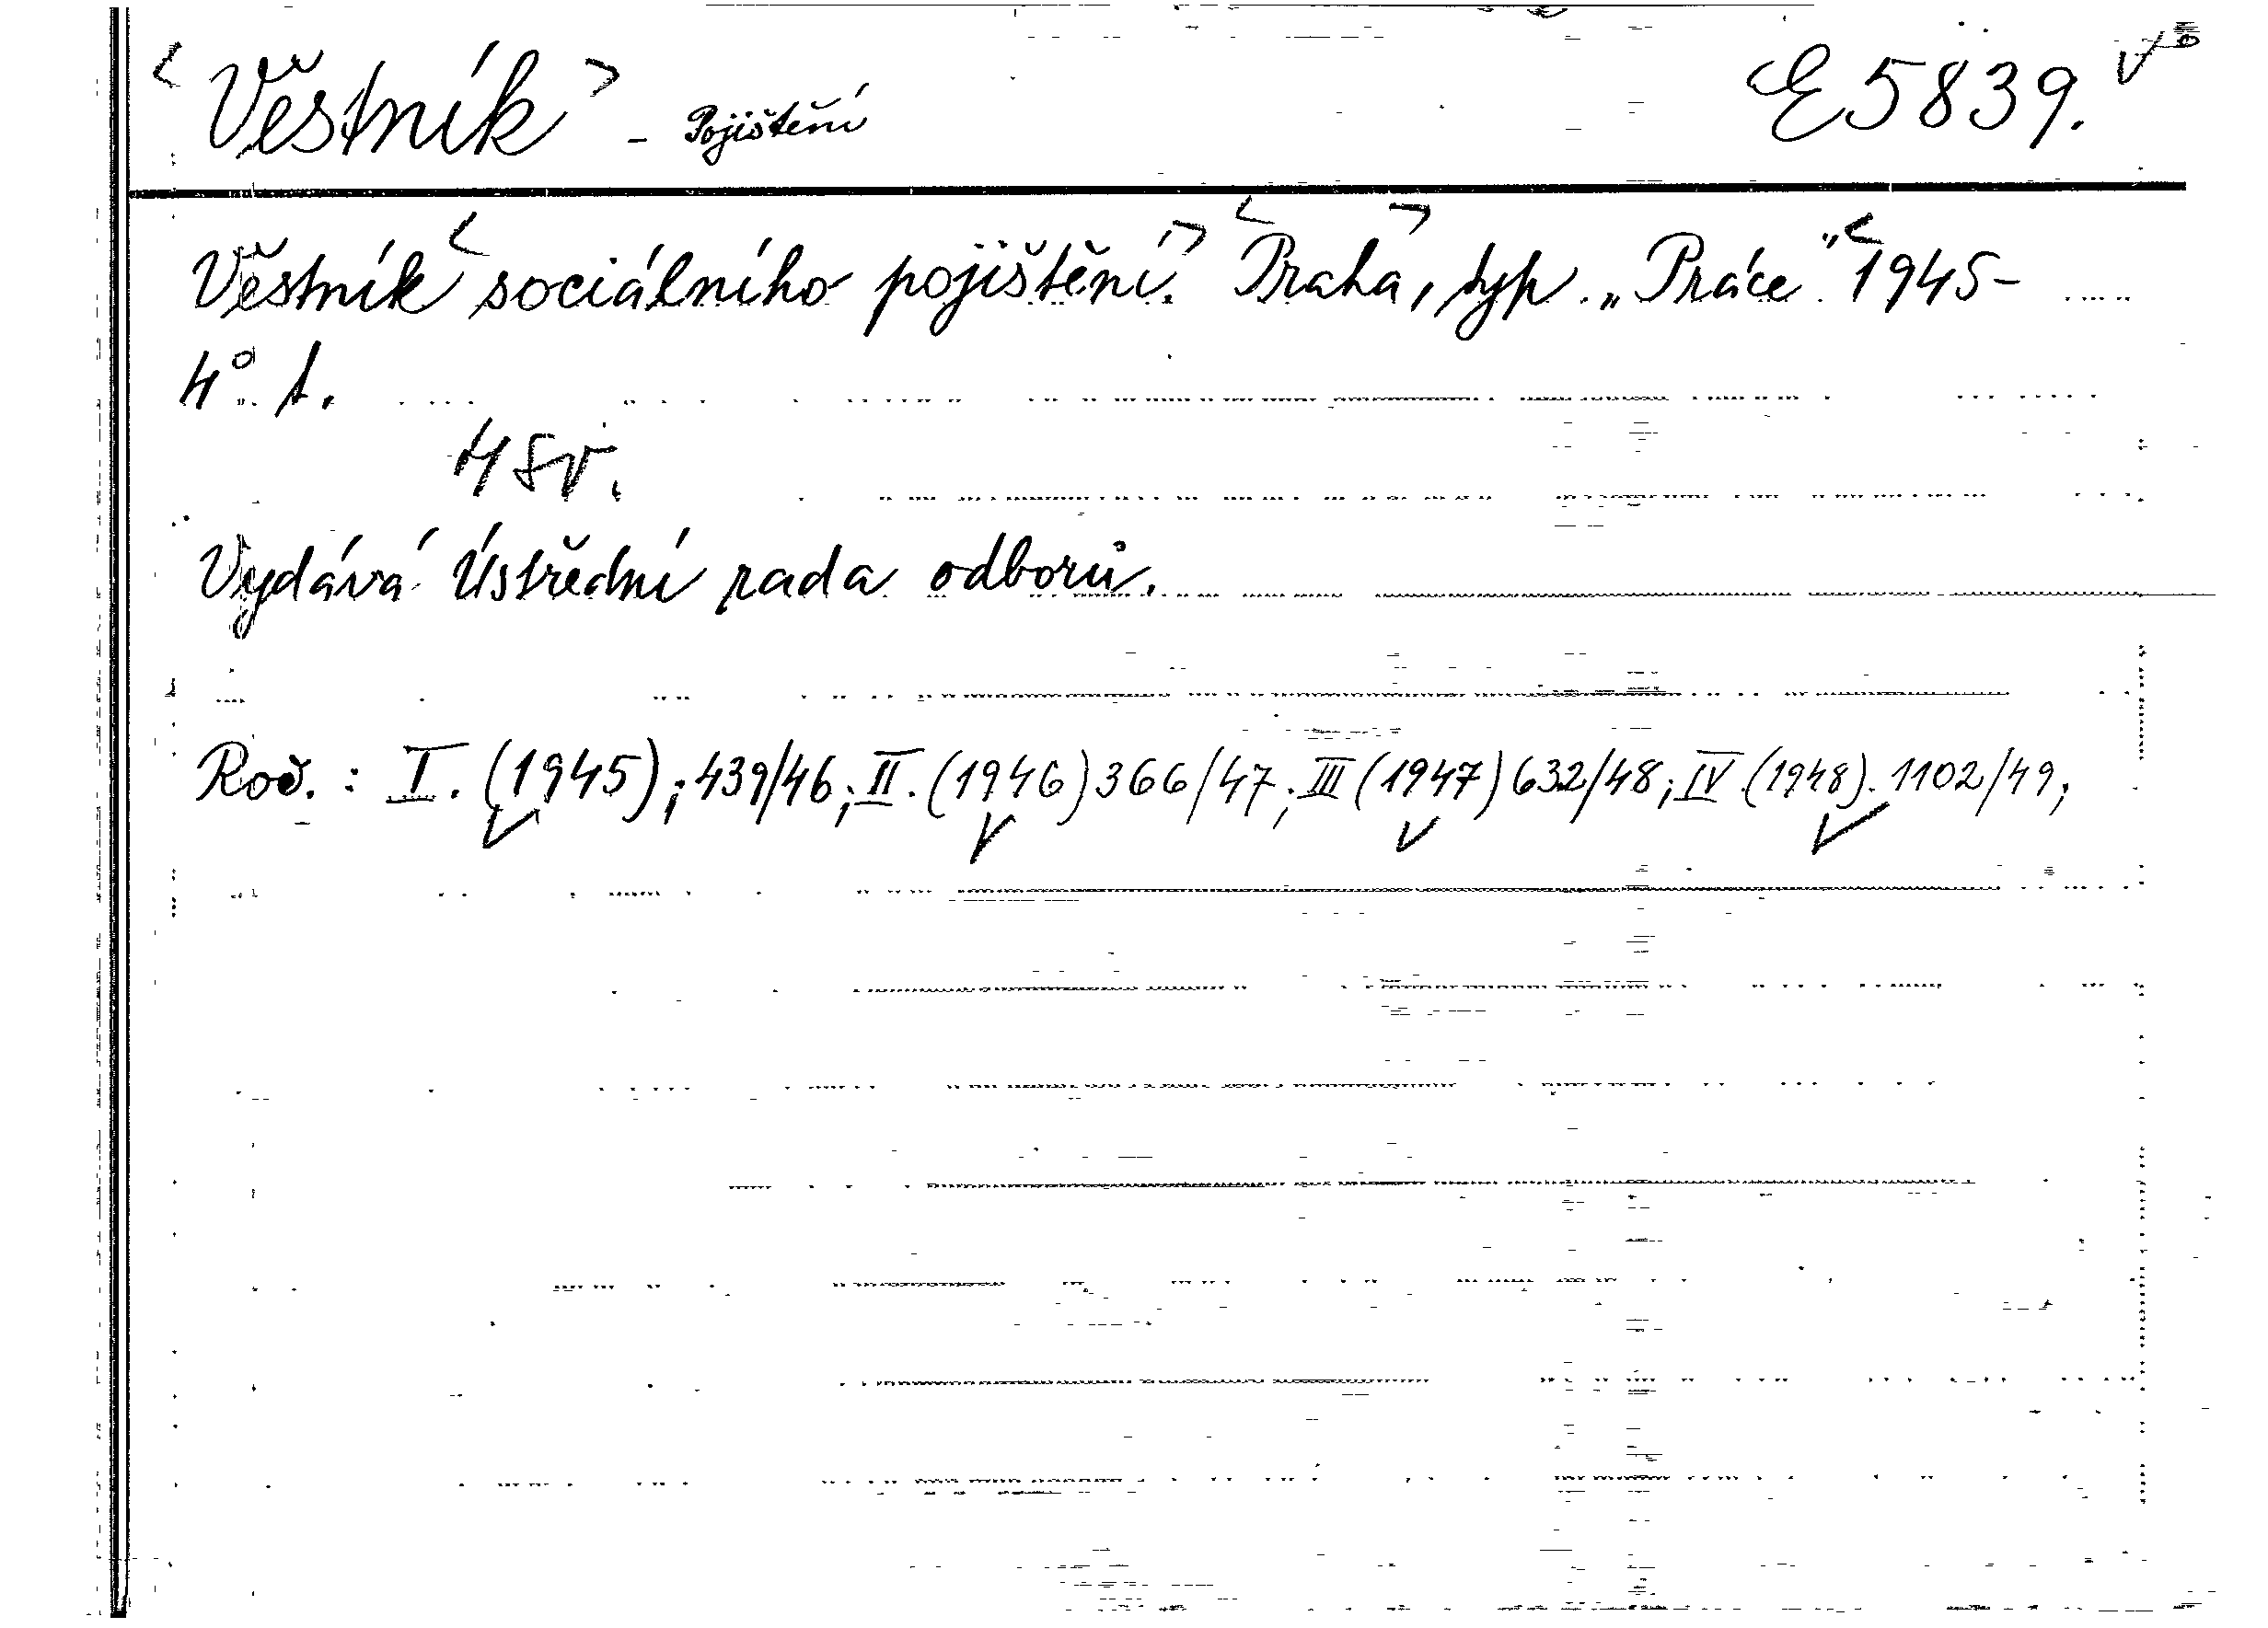 <Věstník> - Pojištění E 5839. v
Věstník <sociálního pojištění.> <Praha>, typ. „Práce". <1945-
4°. t.
4 sv.
Vydává Ústřední rada odborů.
Roč. : I. (1945); 439/46; II. (1946) 366/47; III (1947) 632/48; IV. (1948). 1102/49;